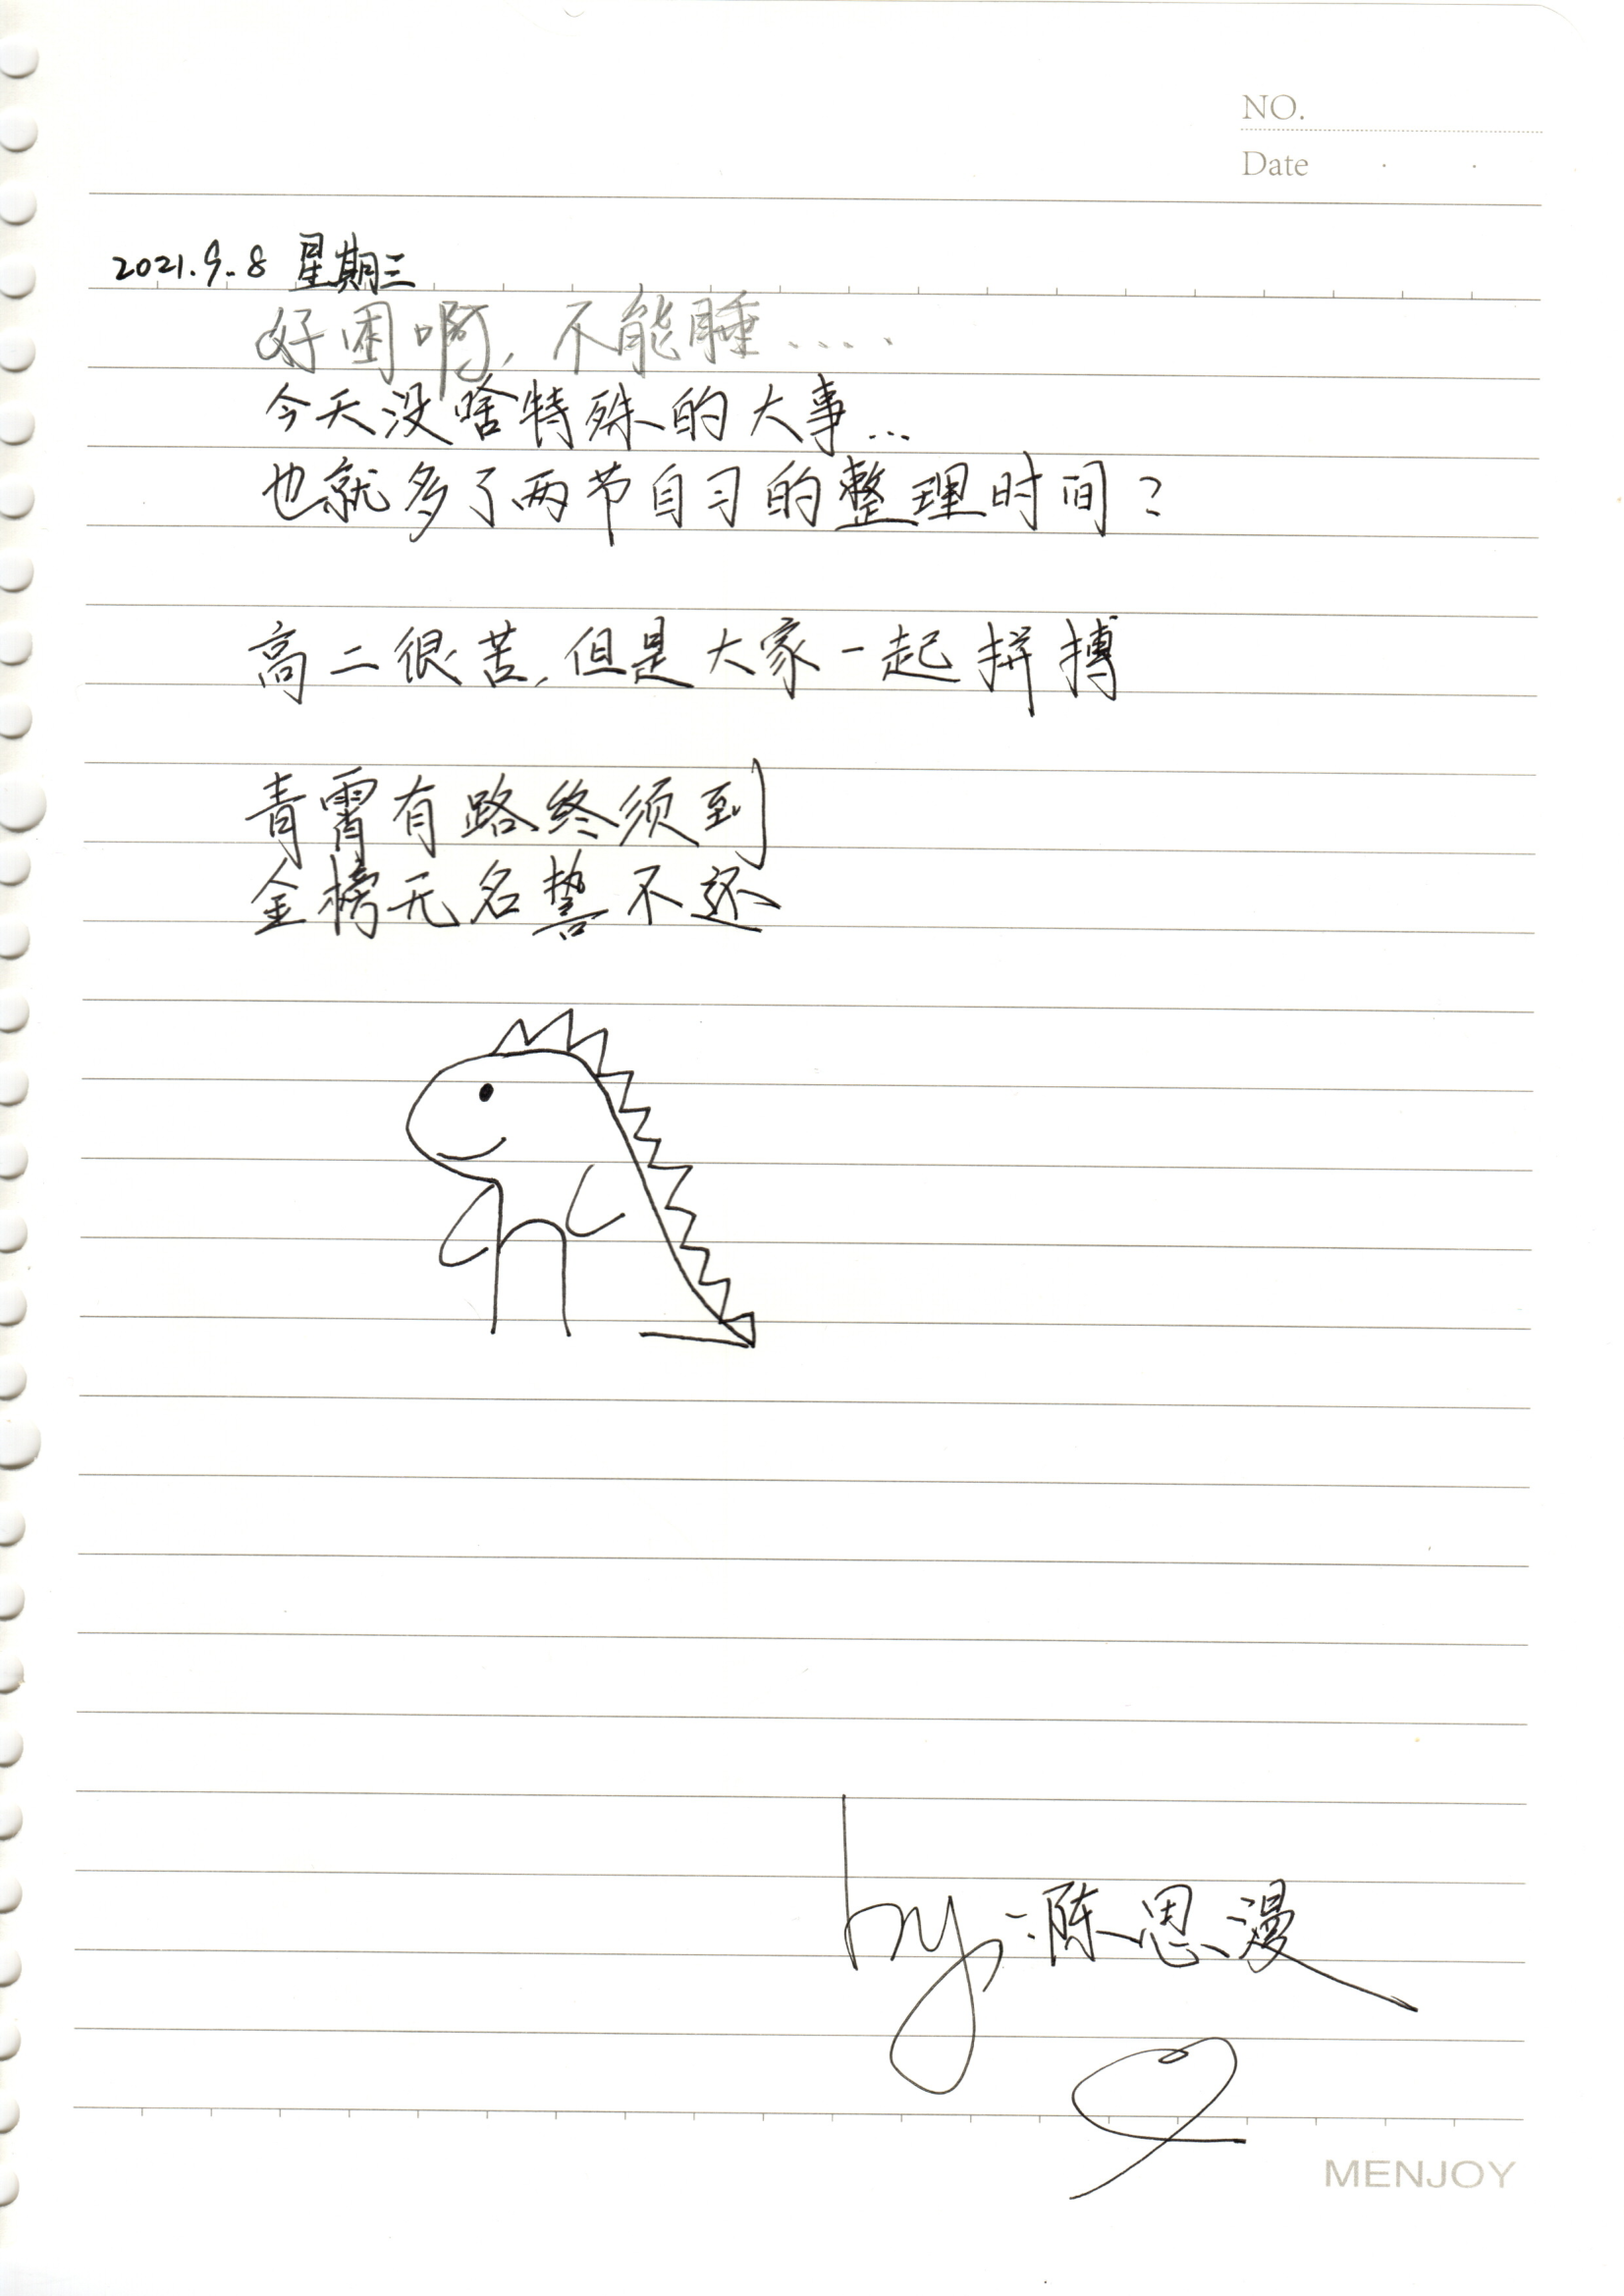 NO.
Date
2021.9.8 星期三
好困啊，不能睡.....
今天没啥特殊的大事...
也就多了两节自习的整理时间？
高二很苦，但是大家一起拼搏
青霄有路终须到
金榜无名誓不还
by：陈思漫
MENJOY